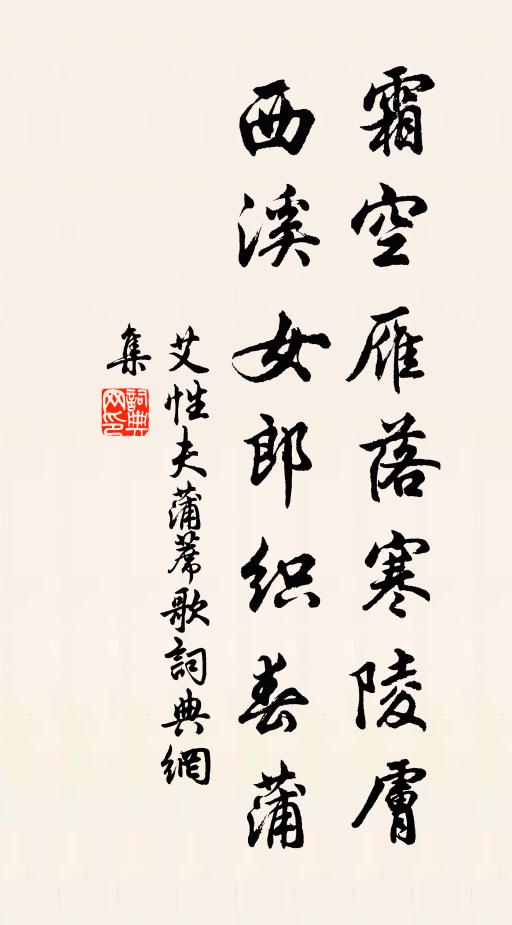 霜空雁落寒陵膚
西溪女郎织春蒲
艾性夫蒲蓆歌詞典網
集
詞典網印